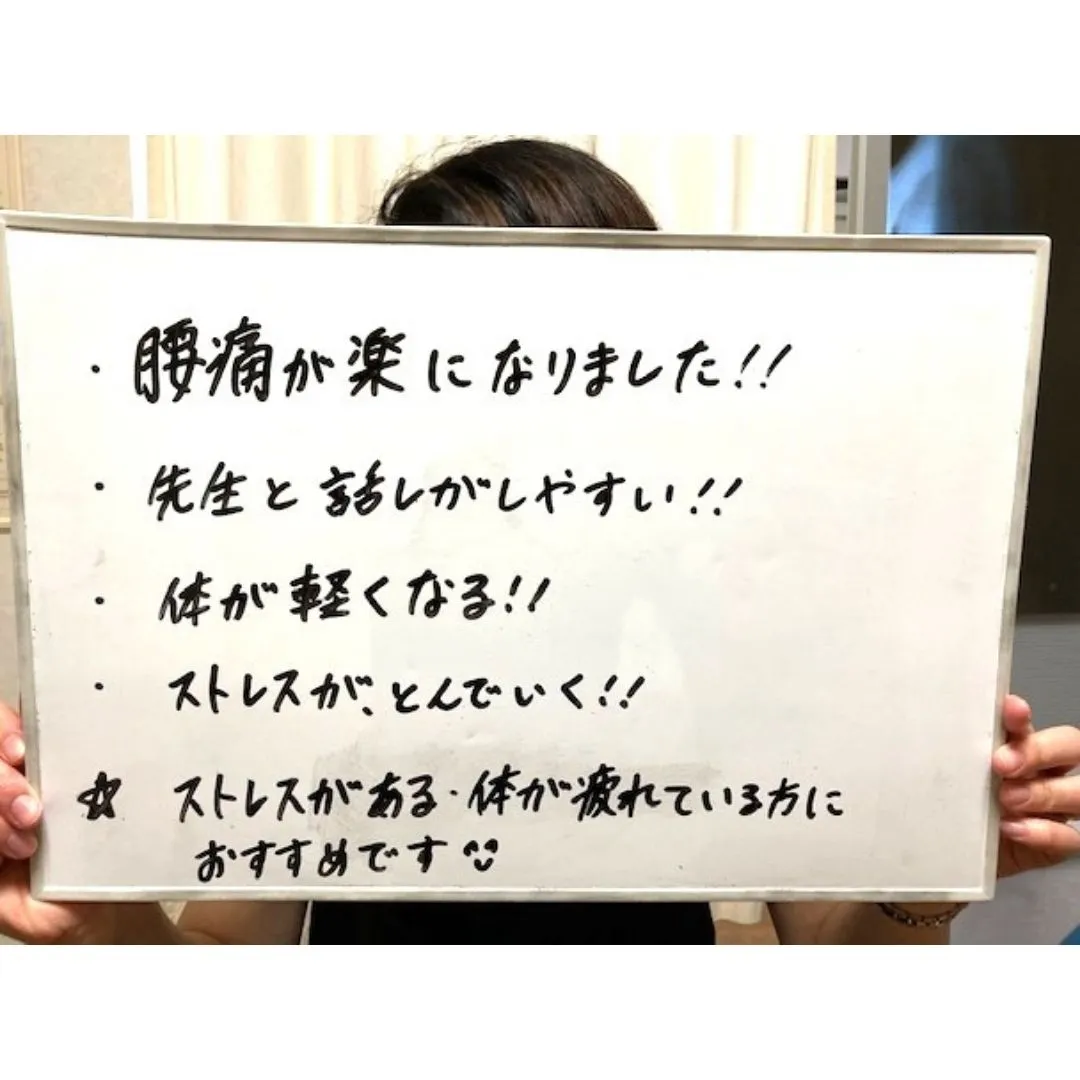 ・腰痛が楽になりました!!
・先生と話しがしやすい!!
・体が軽くなる!!
・ストレスが、とんでいく!!
☆ ストレスがある・体が疲れている方に
おすすめです